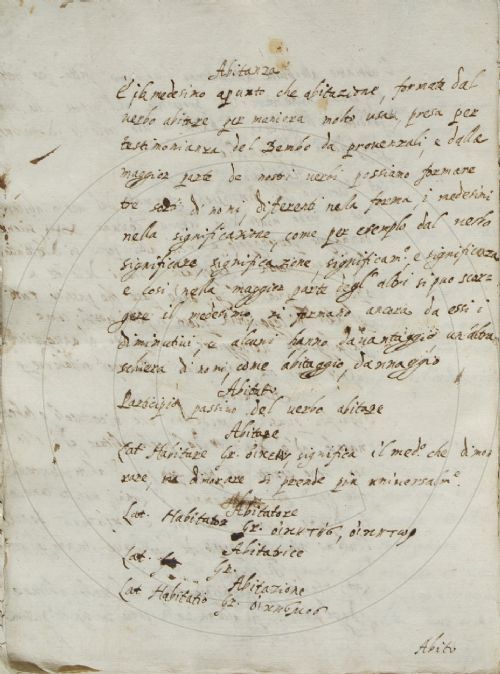 Abitanza
È il medesimo apunto che abitazione, formata dal
verbo abitare per maniera molto usata, presa per
testimonianza del Bembo da provenzali, e dalla
maggior parte de nostri verbi possiamo formare
tre sorti di nomi, diferenti nela forma, i medesimi
nella significazione, come per esempio dal verbo
significare, significazione, significam.º e significanza
e così nella maggior parte degl' altri si può scor-
gere il medesimo, si formano ancora da essi i
diminutivi, e alcuni hanno davantaggio un'altra
schiera di nomi, come abitaggio, dannaggio
Abitato
Participio passivo del verbo abitare
Abitare
Lat. Habitare Gr. οἰκεῖν significa il med.º che dimo
rare, ma dimorare si prende più universalm.e
Abitatore
Lat. Habitator Gr. οἰκητής, οἰκήτωρ
Abitatrice
Lat. Gr.
Abitazione
Lat. Habitatio Gr.
Abito